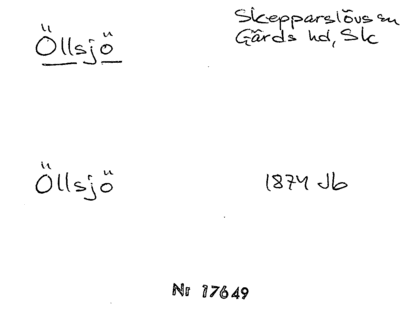 Öllsjö
Skepparslövs sn
Gärds hd, Sk
Öllsjö
1874 Jb
Nr 17649